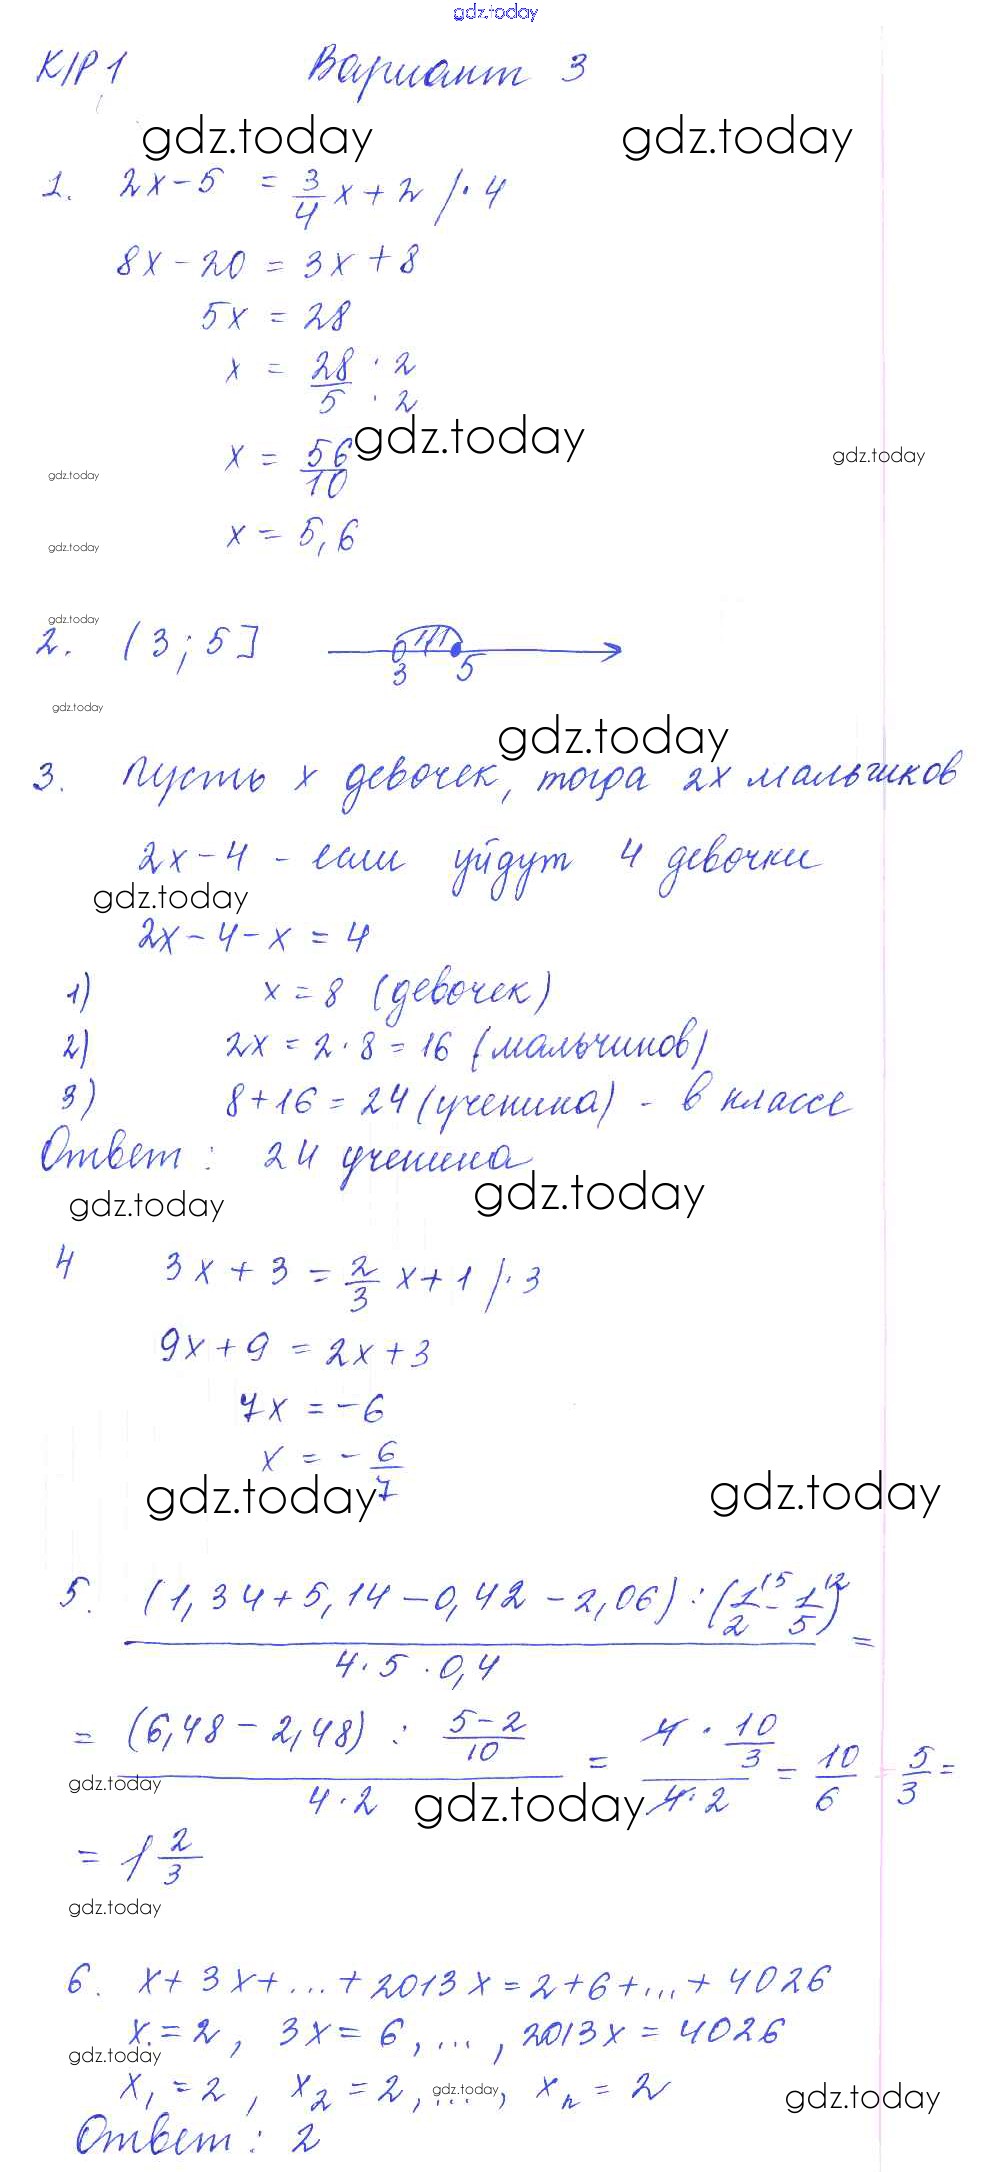 gdz.today
К/Р 1 Вариант 3
gdz.today gdz.today
1. 2x - 5 = 3/4 x + 2 /· 4
8x - 20 = 3x + 8
5x = 28
x = 28 · 2 / 5 · 2
gdz.today
x = 56/10
gdz.today
gdz.today
x = 5,6
gdz.today
gdz.today
2. (3; 5] 3 5
gdz.today
gdz.today
3. Пусть x девочек, тогда 2x мальчиков
2x - 4 - если уйдут 4 девочки
gdz.today
2x - 4 - x = 4
1) x = 8 (девочек)
2) 2x = 2 · 8 = 16 (мальчиков)
3) 8 + 16 = 24 (ученика) - в классе
Ответ: 24 ученика
gdz.today gdz.today
4 3x + 3 = 2/3 x + 1 /· 3
9x + 9 = 2x + 3
7x = -6
x = - 6/7
gdz.today gdz.today
5. (1,34 + 5,14 - 0,42 - 2,06) : (1/2 \5 - 1/5 \2)
4 · 5 · 0,4 =
= (6,48 - 2,48) : 5-2/10 / 4 · 2 = 4 · 10/3 / 4 · 2 = 10/6 = 5/3 =
gdz.today gdz.today
= 1 2/3
gdz.today
6. x + 3x + ... + 2013x = 2 + 6 + ... + 4026
x = 2, 3x = 6, ..., 2013x = 4026
gdz.today
x₁ = 2, x₂ = 2, ..., xₙ = 2
gdz.today gdz.today
Ответ: 2